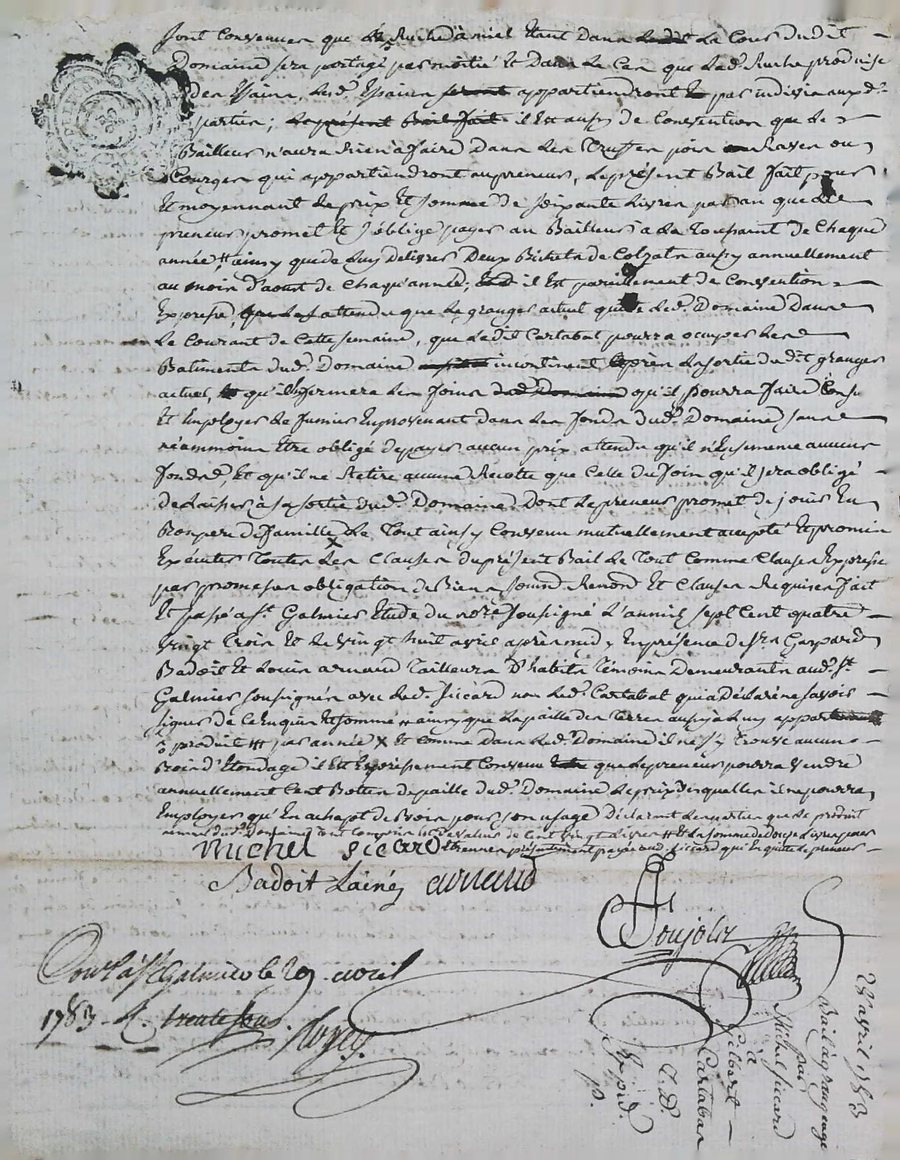 sont convenues que les Ruches à miel étant dans la Cour dudit
Domaine sera partagé par moitié Et Dans le Cas que led. Ruche produise
des Essains, lesd. Essains appartiendront par indivis auxd.
parties; il Est aussy de Convention que le
Bailleur n'aura Rien à faire Dans les Truffes pois Raves ou
Courges qui appartiendront au preneur, le présent Bail fait pour
Et moyennant le prix Et somme de soixante Livres par an que le
preneur promet Et s'oblige payer au Bailleur à la Toussaint de Chaque
année # ainsy que de luy délivrer Deux Bichets de Colzats aussy annuellement
au mois d'aoust de Chaqu'année; il Est pareillement de Convention
Expresse, attendu que le granger actuel quitte led. Domaine Dans
le Courant de Cette semaine, que ledit Cartabat pourra ocuper les
Batiments dud. Domaine incontinent après la sortie dudit granger
actuel, qu'il Enfermera les foins qu'il pourra faire Consu
Et Employer le fumier En provenant dans les fonds dud. Domaine sans
néammoins Etre obligé de payer aucun prix attendu qu'il n'Ensemence aucuns
fonds Et qu'il ne Retire aucune Recolte que Celle du foin qu'il sera obligé
de laisser à sa sortie dud. Domaine Dont le preneur promet de jouir En
Bon pere de famille, Le Tout ainsy Convenu mutuellement accepté Et promis
Exécuter Toutes Les Clauses du présent Bail Le Tout Comme Clause Expresse
par promesses obligation de Biens soumd. Renond. Et Clauses Requises Fait
Et passé à St. Galmier Etude du no.re soussigné L'an mil sept Cent quatre
vingt Trois Et le vingt huit avril après midy En présence de Srs. Gaspard
Badoit Et Louis arnaud Tailleurs D'habits Témoins Demeurants aud. St.
Galmier soussignés avec led. Siccard non led. Cartabat qui a Déclaré ne savoir
signer de Ce Enquis Et sommé # ainsy que la paille des Terres
produit par année X Et comme Dans led. Domaine il ne s'y Trouve aucun
Bois d' il Est Expressement Convenu que le preneur pourra vendre
annuellement Cent Bottes de paille dud. Domaine le prix desquelles il ne pourra
Employer qu'En achapt de Bois pour son usage Déclarant les parties que le produit
annuel dud. Domaine de valeur de Cent vingt Livres Et la somme de douze Livres pour
Etrennes présentement payée aud. Siccard qui En quitte le preneur
michel sicard
Badoit Lainé arnaud
Soujolz
Cont.lé à St Galmier le 29 avril
1783 R. trente sous
28 avril 1783
Bail à grangeage
par
Michel Siccard
à
Gilbert
Cartabat
Expid.